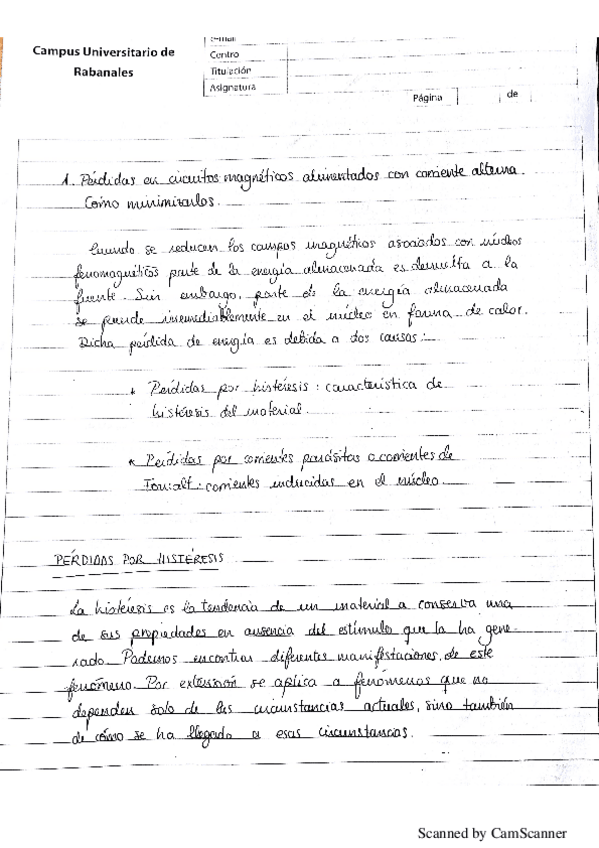 Campus Universitario de
Rabanales
e-mail
Centro
Titulación
Asignatura
Página de
1. Pérdidas en circuitos magnéticos alimentados con corriente alterna.
Cómo minimizarlos.
Cuando se reducen los campos magnéticos asociados con núcleos
ferromagnéticos parte de la energía almacenada es devuelta a la
fuente. Sin embargo, parte de la energía almacenada
se pierde irremediablemente en el núcleo en forma de calor.
Dicha pérdida de energía es debida a dos causas:
* Perdidas por histéresis: característica de
histéresis del material.
* Perdidas por corrientes parásitas o corrientes de
Foucalt: corrientes inducidas en el núcleo
PÉRDIDAS POR HISTÉRESIS
La histéresis es la tendencia de un material a conserva una
de sus propiedades en ausencia del estímulo que la ha gene-
rado. Podemos encontrar diferentes manifestaciones de este
fenómeno. Por extensión se aplica a fenómenos que no
dependen solo de las circunstancias actuales, sino también
de cómo se ha llegado a esas circunstancias.
Scanned by CamScanner